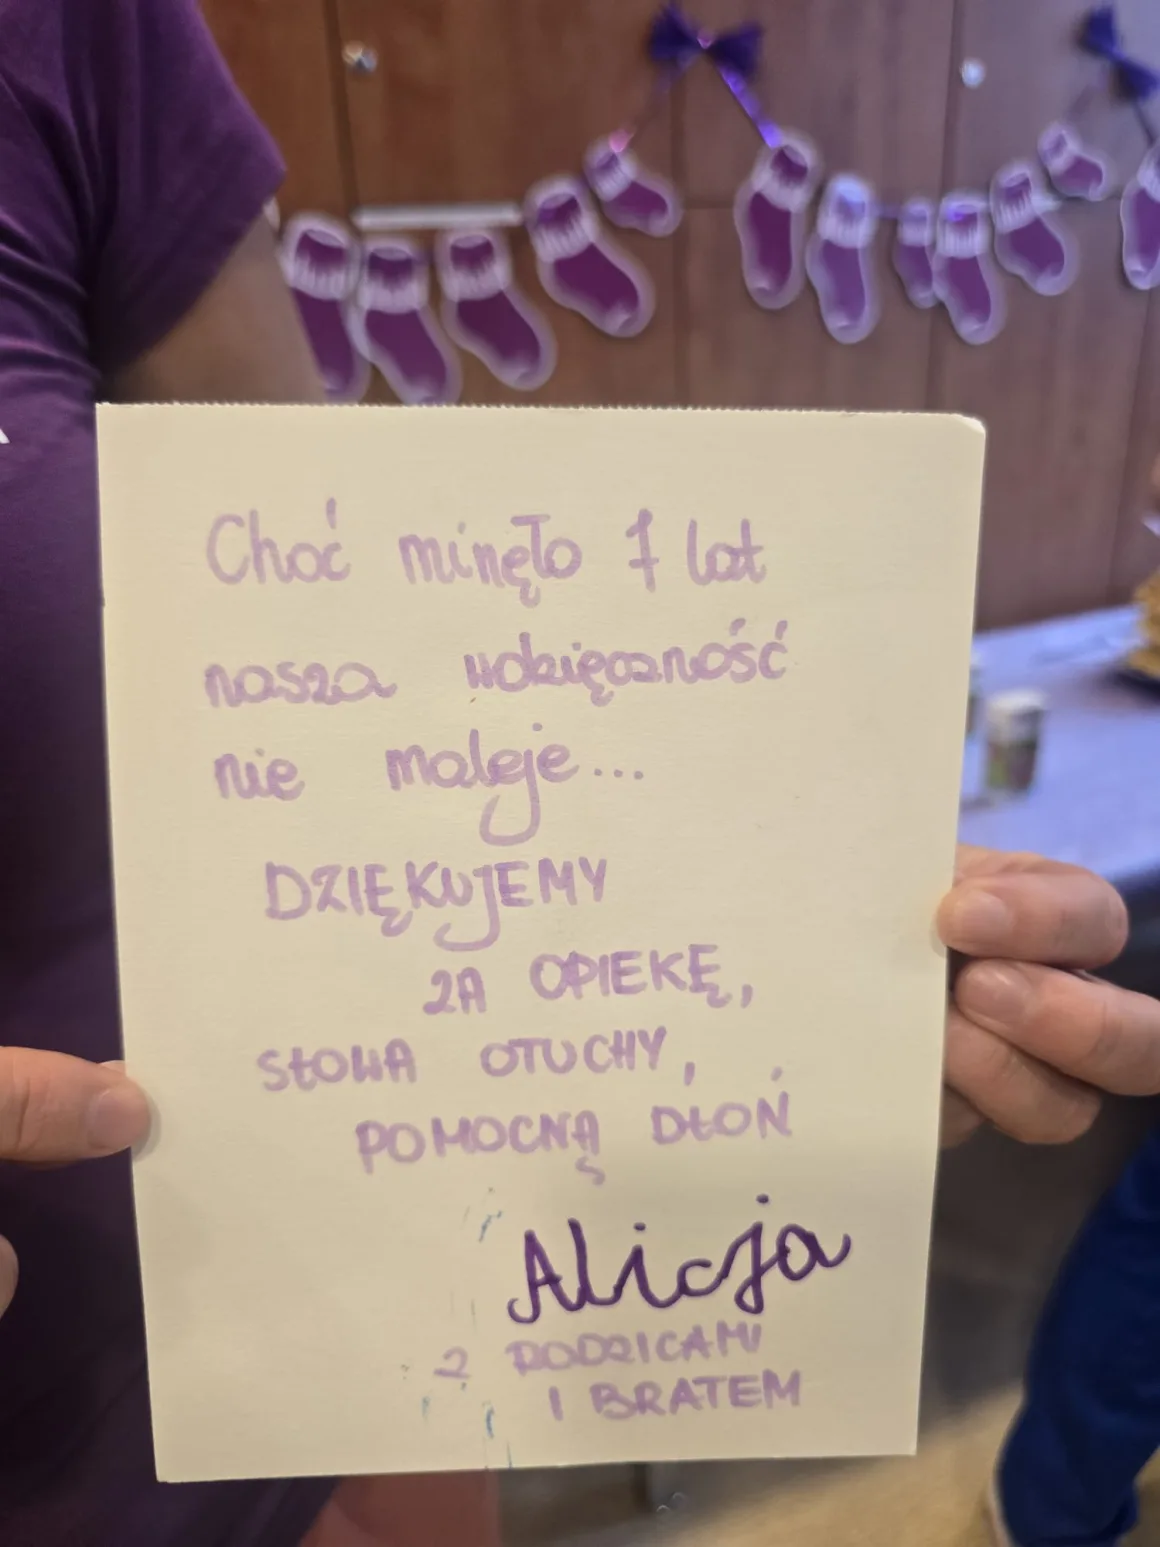 Choć minęło 7 lat
nasza wdzięczność
nie maleje...
DZIĘKUJEMY
ZA OPIEKĘ,
SŁOWA OTUCHY,
POMOCNĄ DŁOŃ
Alicja
Z RODZICAMI
I BRATEM